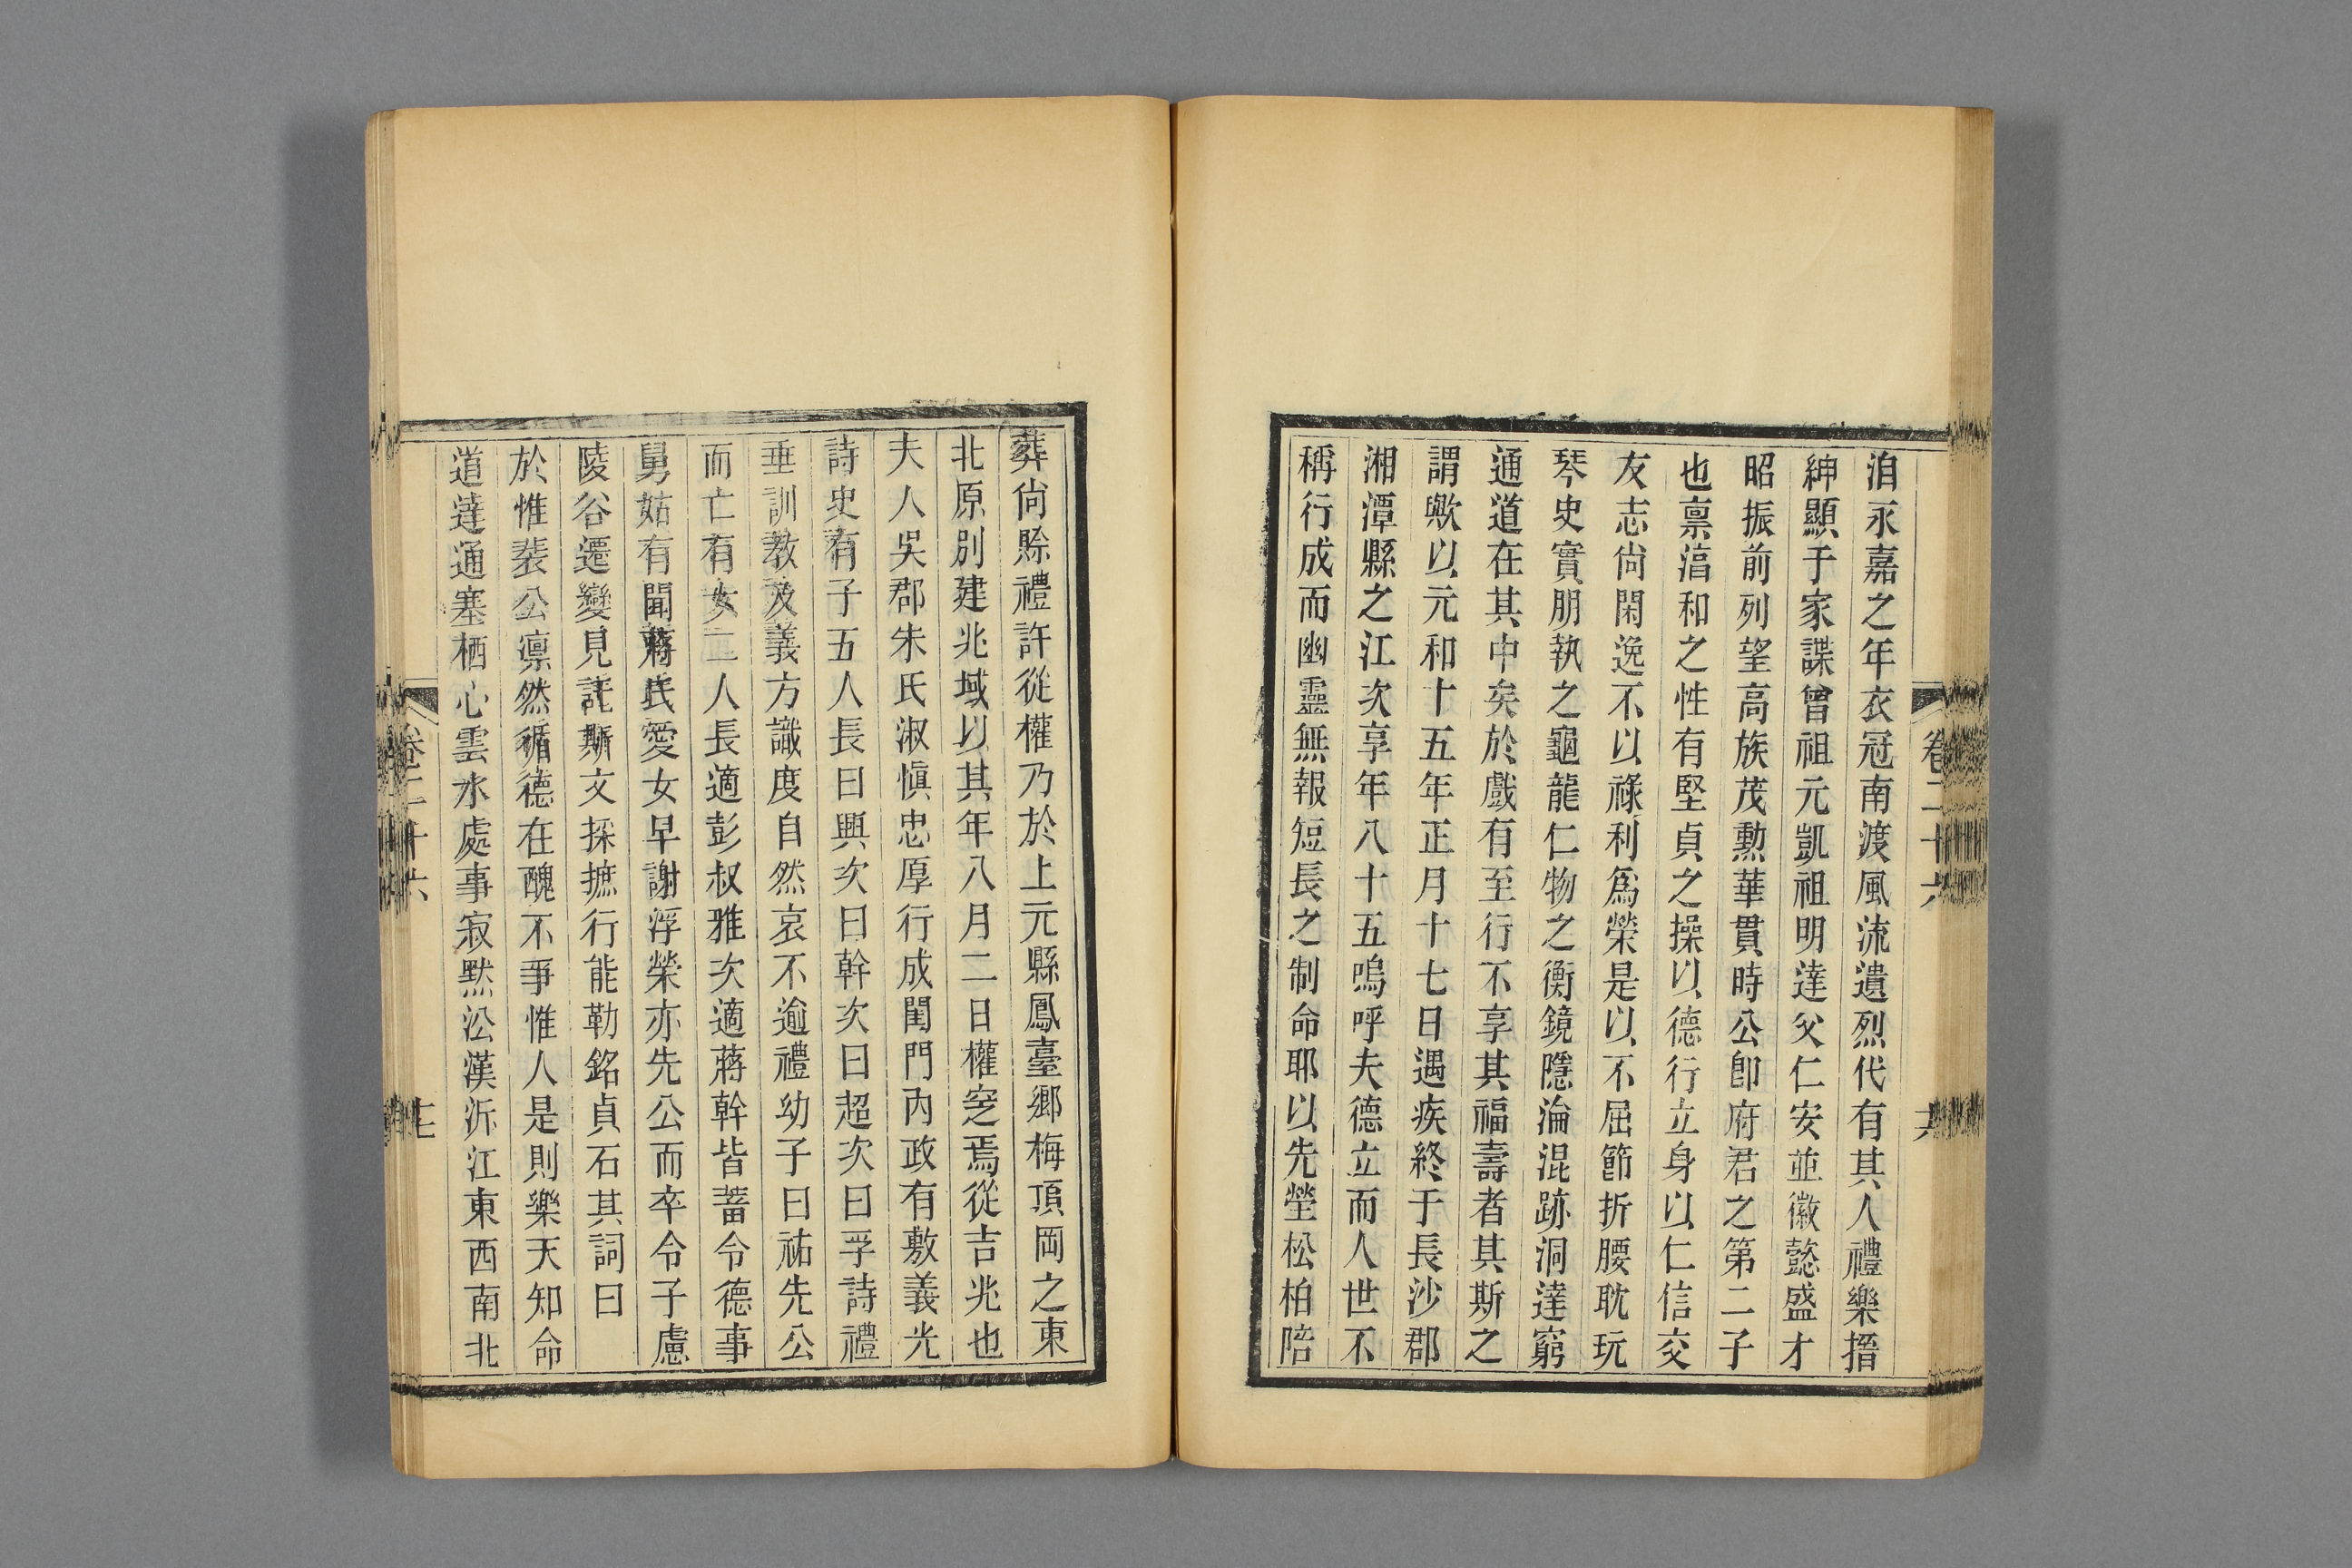 洎永嘉之年衣冠南渡風流遺烈代有其人禮樂搢
紳顯于家諜曾祖元凱祖明達父仁安並徽懿盛才
昭振前列望高族茂勲華貫時公卽府君之第二子
也禀湻和之性有堅貞之操以德行立身以仁信交
友志尙閑逸不以祿利爲榮是以不屈節折腰耽玩
琴史實朋執之龜龍仁物之衡鏡隱淪混跡洞達窮
通道在其中矣於戲有至行不享其福壽者其斯之
謂歟以元和十五年正月十七日遇疾終于長沙郡
湘潭縣之江次享年八十五嗚呼夫德立而人世不
稱行成而幽靈無報短長之制命耶以先塋松柏陪
葬尙賒禮許從權乃於上元縣鳳臺鄉梅頂岡之東
北原別建兆域以其年八月二日權窆焉從吉兆也
夫人吳郡朱氏淑愼忠厚行成閨門內政有敷義光
詩史有子五人長曰興次曰幹次曰超次曰孚詩禮
垂訓教及義方識度自然哀不逾禮幼子曰祐先公
而亡有女二人長適彭叔雅次適蔣幹皆蓄令德事
舅姑有聞蔣氏愛女早謝浮榮亦先公而卒令子慮
陵谷遷變見託斯文採摭行能勒銘貞石其詞曰
於惟裴公凛然循德在醜不爭惟人是則樂天知命
道達通塞栖心雲水處事寂默㳂漢泝江東西南北
卷二十六
七